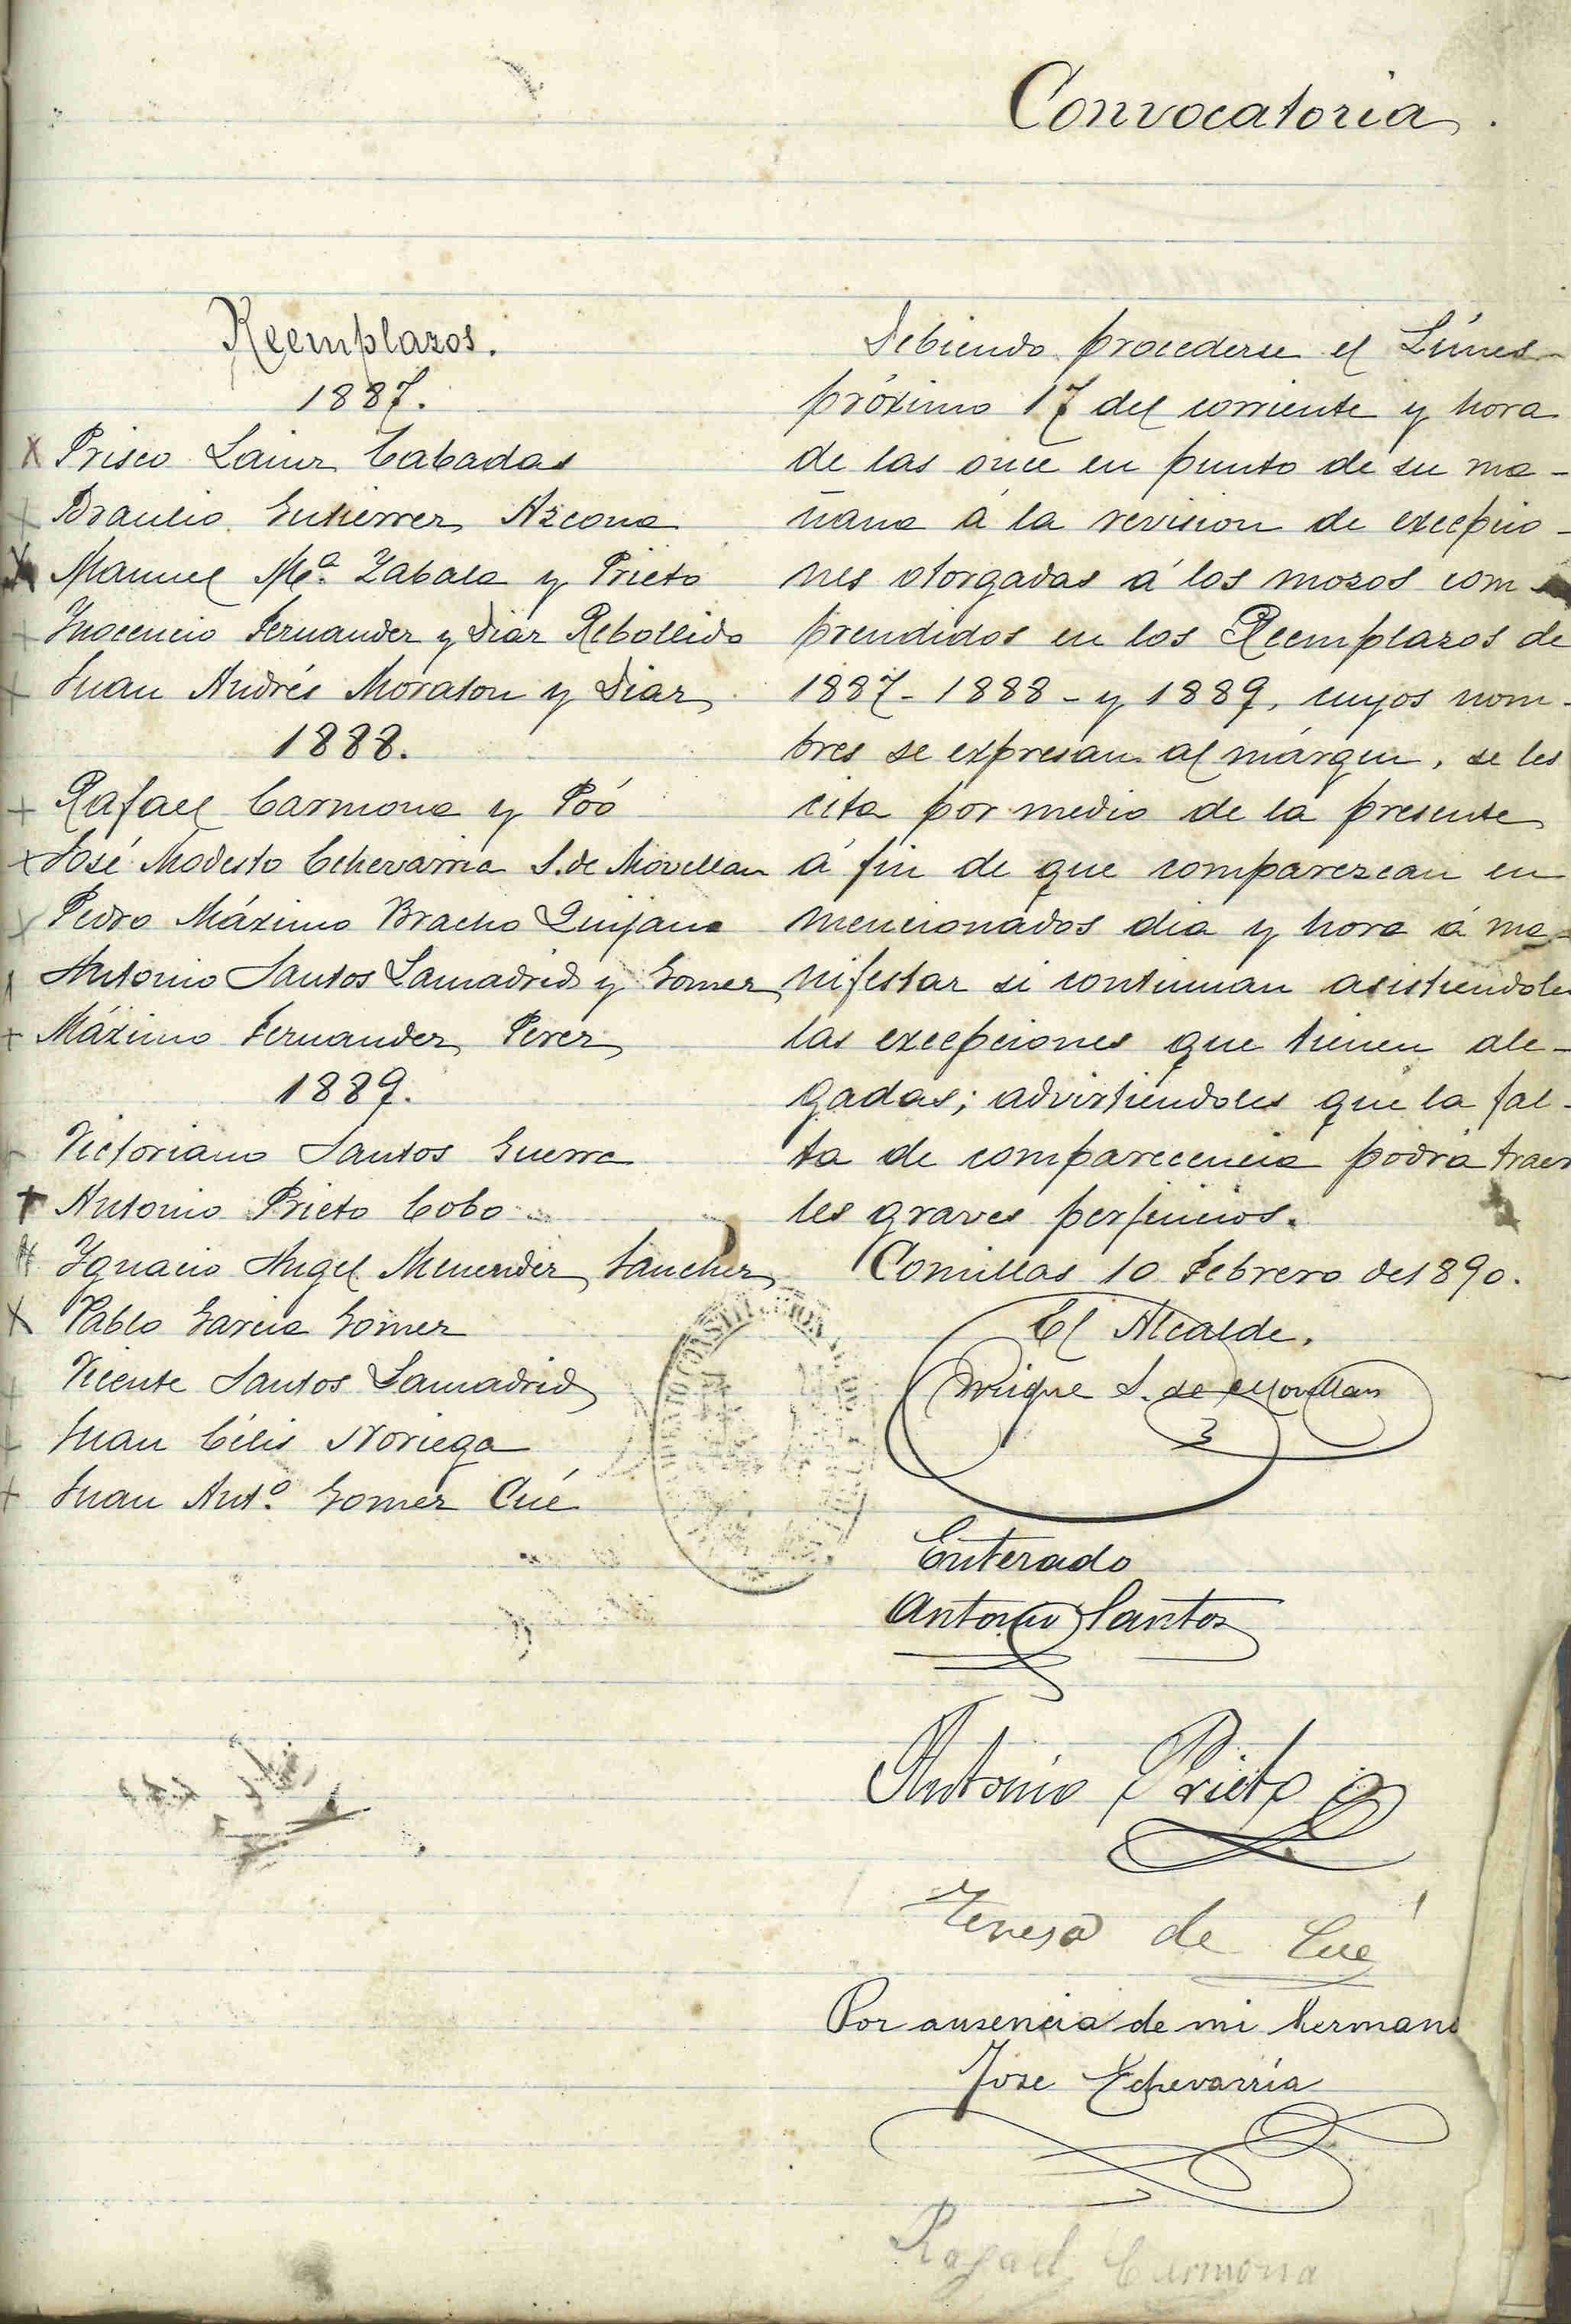 Convocatoria.
Reemplazos.
1887.
Prisco Lainz Cabadas
Braulio Gutierrez Azcona
Manuel Mª. Zabala y Prieto
Inocencio Fernandez y Diaz Rebollido
Juan Andrés Moraton y Diaz
1888.
Rafael Carmona y Póó
José Modesto Echevarria S. de Movellan
Pedro Máximo Bracho Quijano
Antonio Santos Lamadrid y Gomez
Máximo Fernandez Perez
1889.
Victoriano Santos Guerra
Antonio Prieto Cobo
Ignacio Angel Menendez Sanchez
Pablo Garcia Gomez
Vicente Santos Lamadrid
Juan Célis Noriega
Juan Antº. Gomez Cué
Debiendo procederse el Lúnes
próximo 17 del corriente y hora
de las once en punto de su ma-
ñana á la revision de excepcio-
nes otorgadas á los mozos com
prendidos en los Reemplazos de
1887- 1888 - y 1889, cuyos nom-
bres se expresan al márgen, se les
cita por medio de la presente
á fin de que comparezcan en
mencionados dia y hora á ma-
nifestar si continuan asistiendoles
las excepciones que tienen ale-
gadas; advirtiéndoles que la fal-
ta de comparecencia podrá traer
les graves perjuicios.
Comillas 10 Febrero de 1890.
El Alcalde,
Enrique S. de Movellan
Enterado
Antonio Santos
Antonio Prieto
Teresa de Cué
Por ausencia de mi hermano
Jose Echevarría
Rafael Carmona